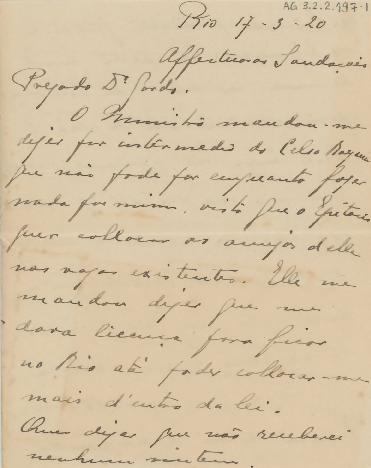 AG 3.2.2.197-1
Rio 17-3-20
Affectuosas Saudações
Prezado Dr. Gordo.
O Ministro mandou-me
dizer por intermedio do Celso Bayma
que não pode por emquanto fazer
nada por mim, visto que o Epitacio
quer collocar os amigos d'elle
nas vagas existentes. Elle me
mandou dizer que me
dara licença para ficar
no Rio até poder collocar-me
mais d'entro da lei.
Quer dizer que não receberei
nenhum vintem.